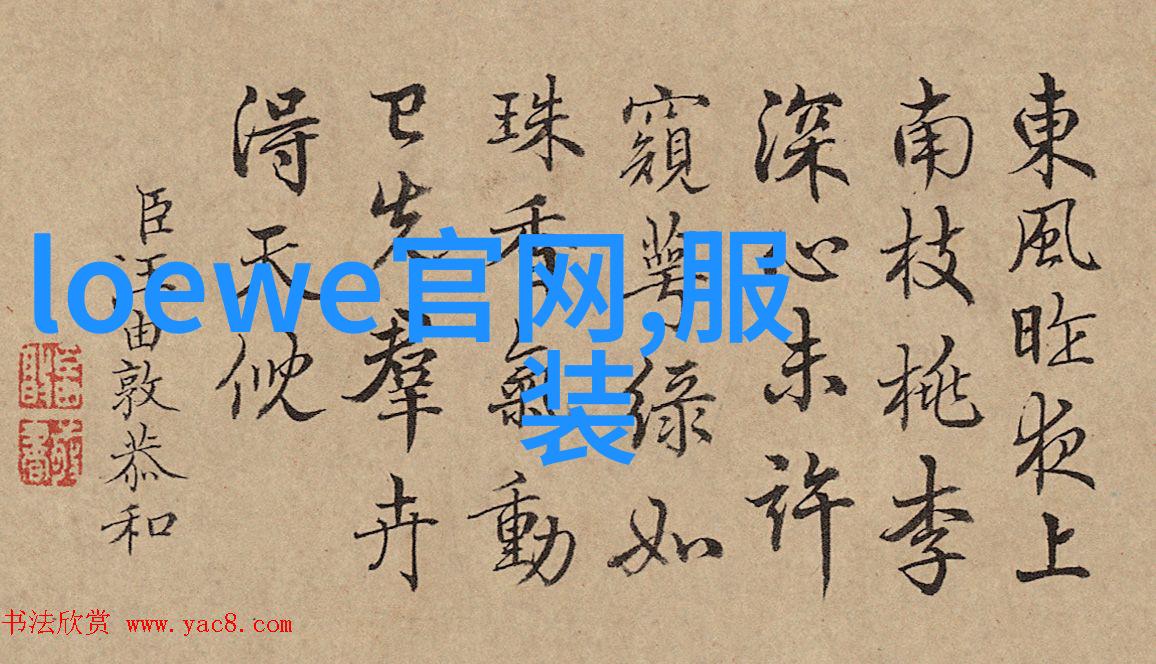 東風昨夜上
南枝桃李
深心未許
窺萼綠如
珠香氣動
已先羣卉
得天俛
臣汪由敦恭和
loewe官网,服
装
书法欣赏 www.yac8.com